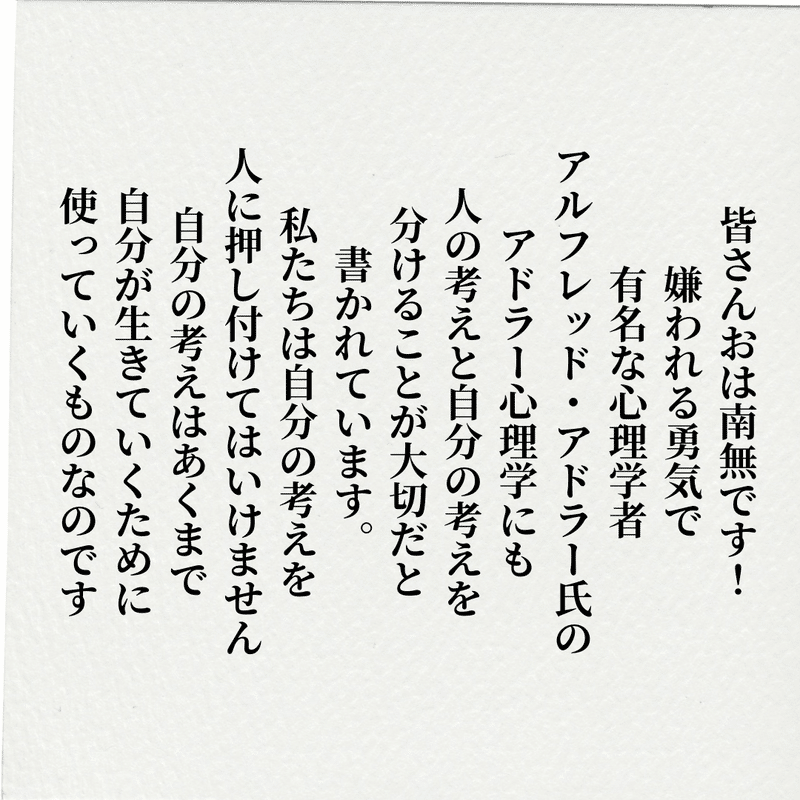 皆さんおは南無です！
嫌われる勇気で
有名な心理学者
アルフレッド・アドラー氏の
アドラー心理学にも
人の考えと自分の考えを
分けることが大切だと
書かれています。
私たちは自分の考えを
人に押し付けてはいけません
自分の考えはあくまで
自分が生きていくために
使っていくものなのです